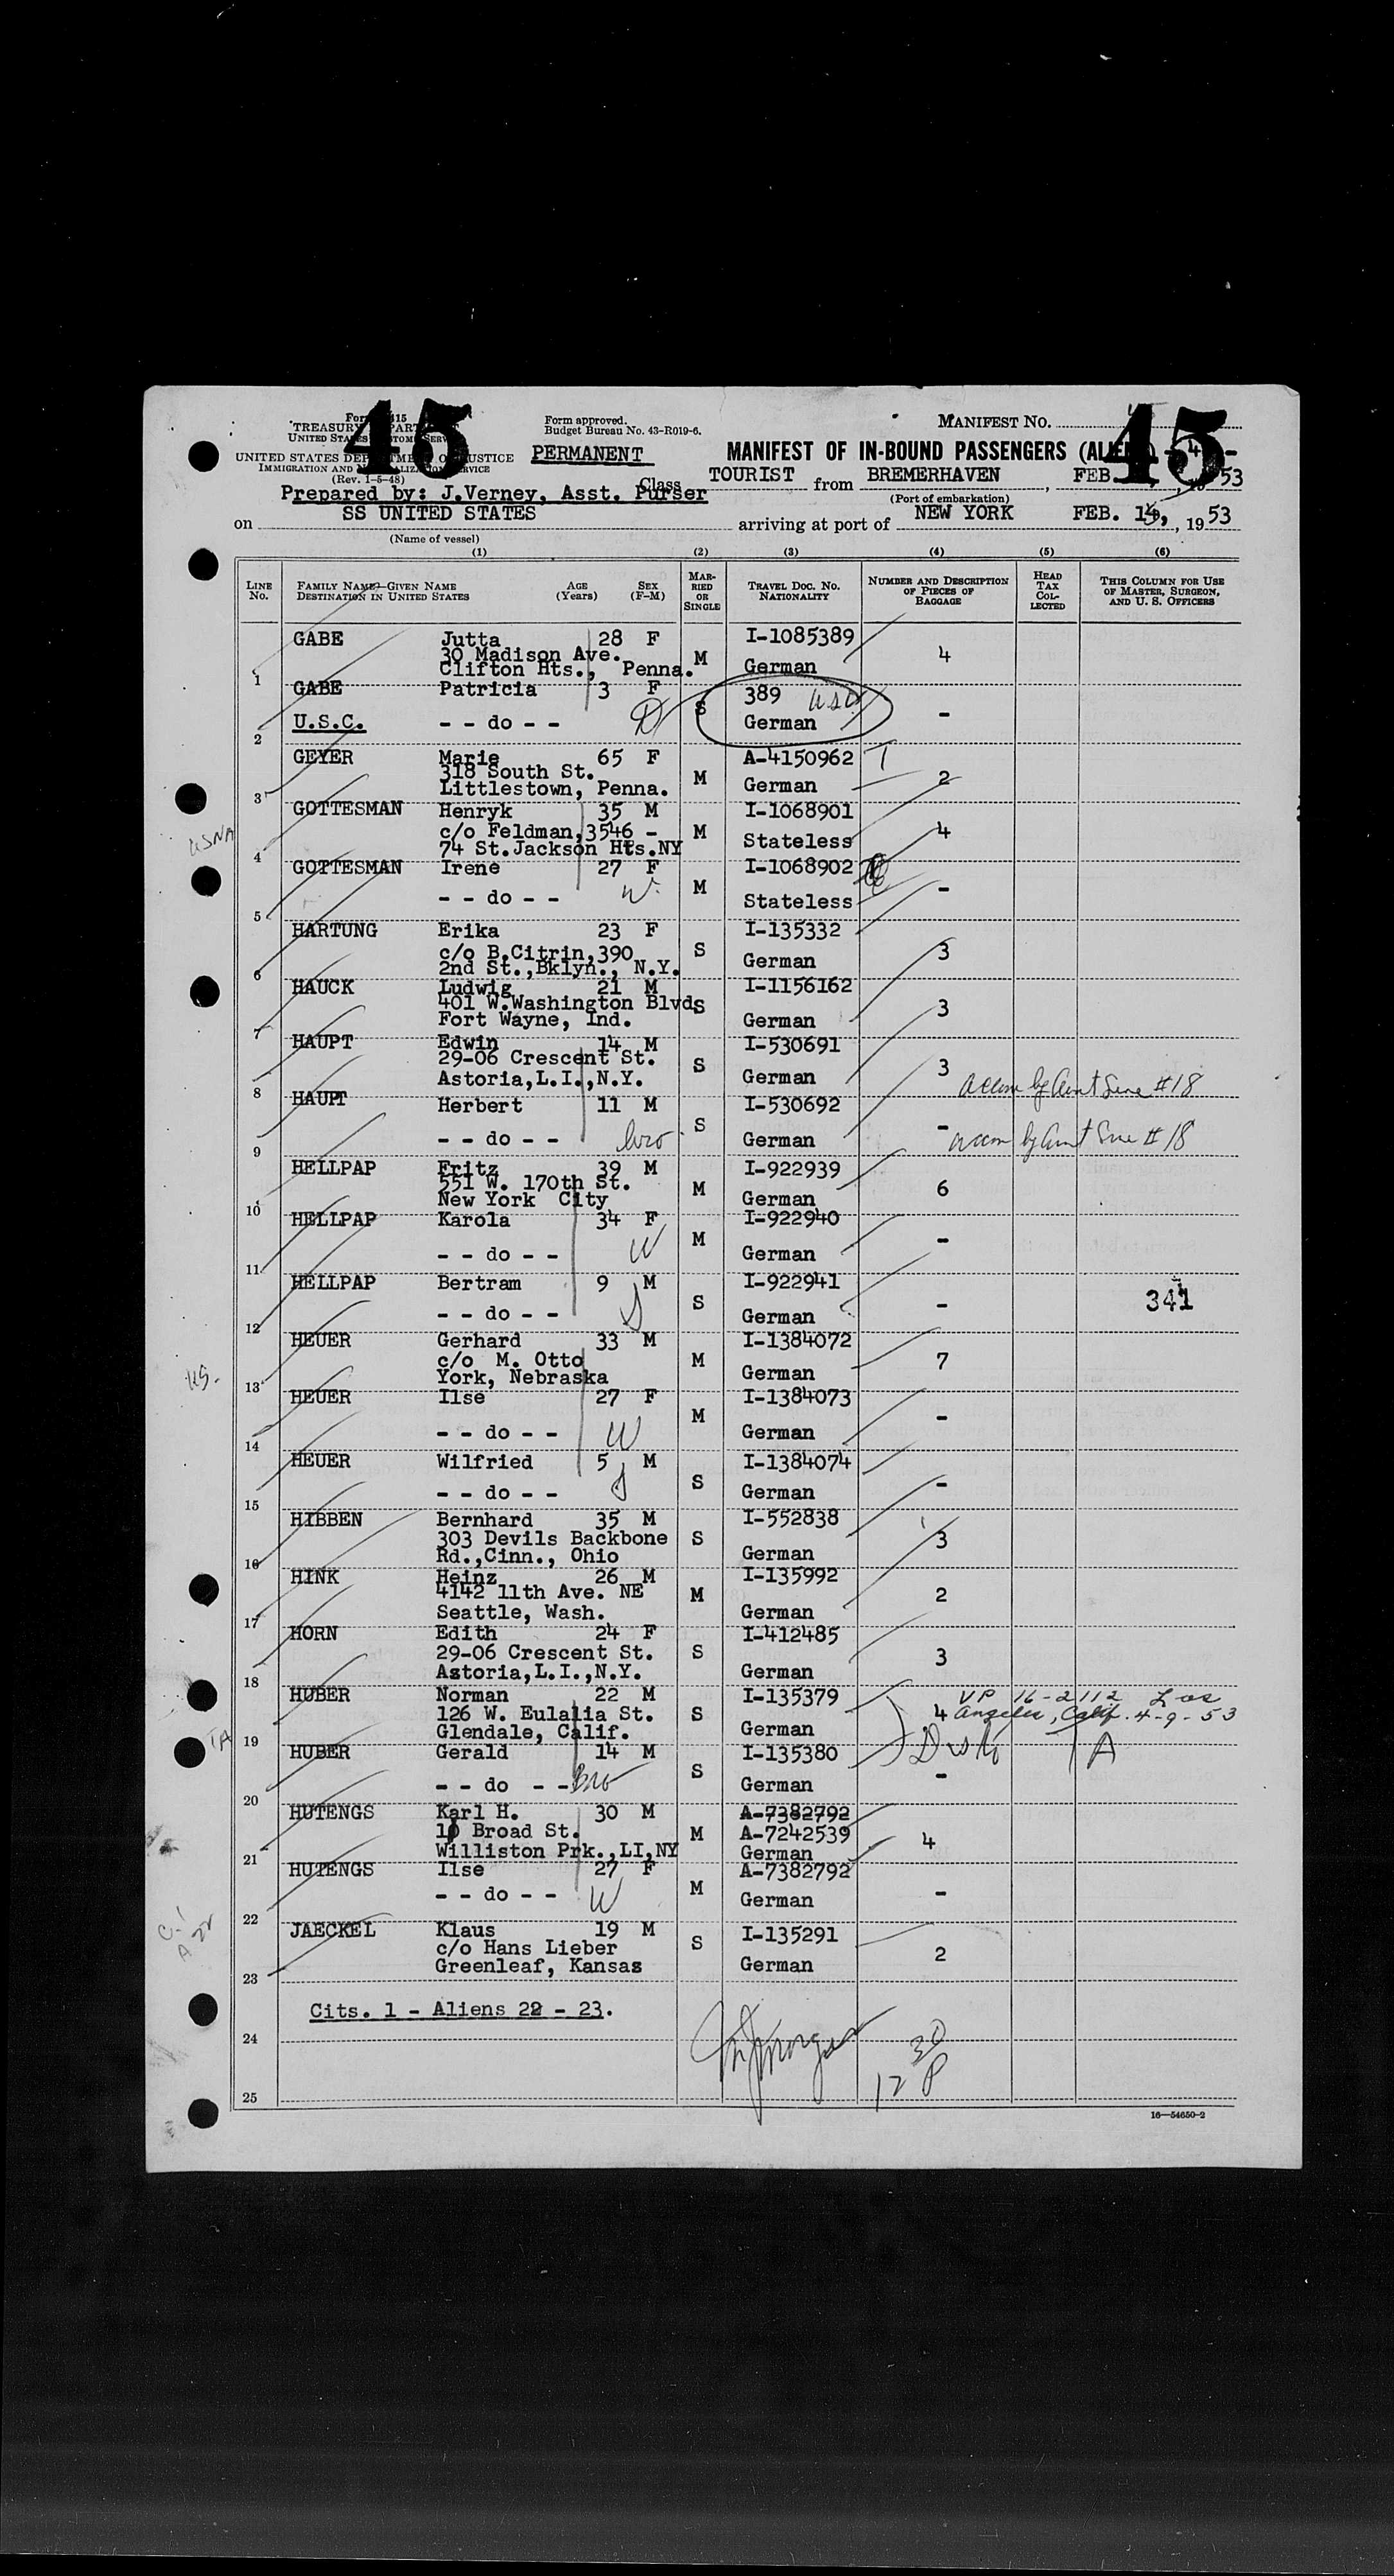 45 45
Form approved.
Budget Bureau No. 43-R019-6.
MANIFEST NO.
TREASURY
UNITED STATES
UNITED STATES DEPARTMENT OF JUSTICE
IMMIGRATION AND NATURALIZATION SERVICE
(Rev. 1-5-48)
PERMANENT
MANIFEST OF IN-BOUND PASSENGERS
Class TOURIST from BREMERHAVEN, FEB. 53
(Port of embarkation)
Prepared by: J.Verney, Asst. Purser
on SS UNITED STATES arriving at port of NEW YORK FEB. , 1953
(Name of vessel)
(1) (2) (3) (4) (5) (6)
LINE No. FAMILY NAME—GIVEN NAME DESTINATION IN UNITED STATES AGE (Years) SEX (F-M) MARRIED OR SINGLE TRAVEL DOC. No. NATIONALITY NUMBER AND DESCRIPTION OF PIECES OF BAGGAGE HEAD TAX COLLECTED THIS COLUMN FOR USE OF MASTER, SURGEON, AND U. S. OFFICERS
GABE Jutta 28 F I-1085389
30 Madison Ave. M 4
Clifton Hts., Penna. German
1
GABE Patricia 3 F S 389
U.S.C. - - do - - D German -
2
GEYER Marie 65 F A-4150962
318 South St. M 2
Littlestown, Penna. German
3
GOTTESMAN Henryk 35 M I-1068901
USNA c/o Feldman,3546 - M 4
74 St.Jackson Hts.NY Stateless
4
GOTTESMAN Irene 27 F I-1068902
- - do - - W M Stateless -
5
HARTUNG Erika 23 F I-135332
c/o B.Citrin,390 S German 3
2nd St.,Bklyn., N.Y.
6
HAUCK Ludwig 21 M I-1156162
401 W.Washington Blvd. S 3
Fort Wayne, Ind. German
7
HAUPT Edwin 14 M I-530691
29-06 Crescent St. S 3
Astoria,L.I.,N.Y. German accom by Aunt Line #18
8
HAUPT Herbert 11 M I-530692
- - do - - bro S German - accom by Aunt Line #18
9
HELLPAP Fritz 39 M I-922939
551 W. 170th St. M 6
New York City German
10
HELLPAP Karola 34 F I-922940
- - do - - W M German -
11
HELLPAP Bertram 9 M I-922941
- - do - - S S German - 341
12
HEUER Gerhard 33 M I-1384072
c/o M. Otto M 7
York, Nebraska German
13
HEUER Ilse 27 F I-1384073
- - do - - W M German -
14
HEUER Wilfried 5 M I-1384074
- - do - - S S German -
15
HIBBEN Bernhard 35 M I-552838
303 Devils Backbone S 3
Rd.,Cinn., Ohio German
16
HINK Heinz 26 M I-135992
4142 11th Ave. NE M 2
Seattle, Wash. German
17
HORN Edith 24 F I-412485
29-06 Crescent St. S 3
Astoria,L.I.,N.Y. German
18
HUBER Norman 22 M I-135379 VP 16-2112 Los
126 W. Eulalia St. S 4 Angeles, Calif. 4-9-53
Glendale, Calif. German
19
HUBER Gerald 14 M I-135380 A
- - do - - Bro S German -
20
HUTENGS Karl H. 30 M A-7382792
Broad St. M A-7242539 4
Williston Prk.,LI,NY German
21
HUTENGS Ilse 27 F A-7382792
- - do - - W M German -
22
JAECKEL Klaus 19 M I-135291
c/o Hans Lieber S 2
Greenleaf, Kansas German
23
Cits. 1 - Aliens 22 - 23.
24
12 30 P
25
16—54650-2